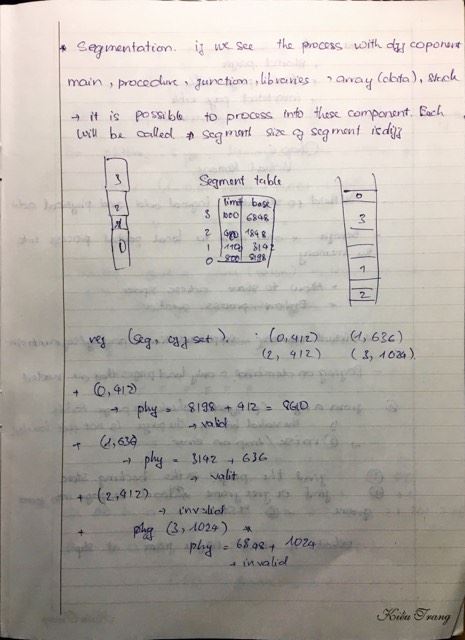 * Segmentation. if we see the process with diff coponent
main, procedure, function, libraries, array (data), stack
→ it is possible to process into these component. Each
will be called segment size of segment is diff
Segment table
limit base
3 1000 6848
2 1848
1 1100 3142
0 800 8198
3
2
1
0
0
3
1
2
(seg, offset). (0,412) (1,636)
(2, 412) (3, 1024)
+ (0,412)
→ phy = 8198 + 412 = 8610
→ valid
+ (1,636)
→ phy = 3142 + 636
→ valit
+ (2,412)
→ invalid
+ (3, 1024)
phy = 6848 + 1024
→ invalid
Kiều Trang